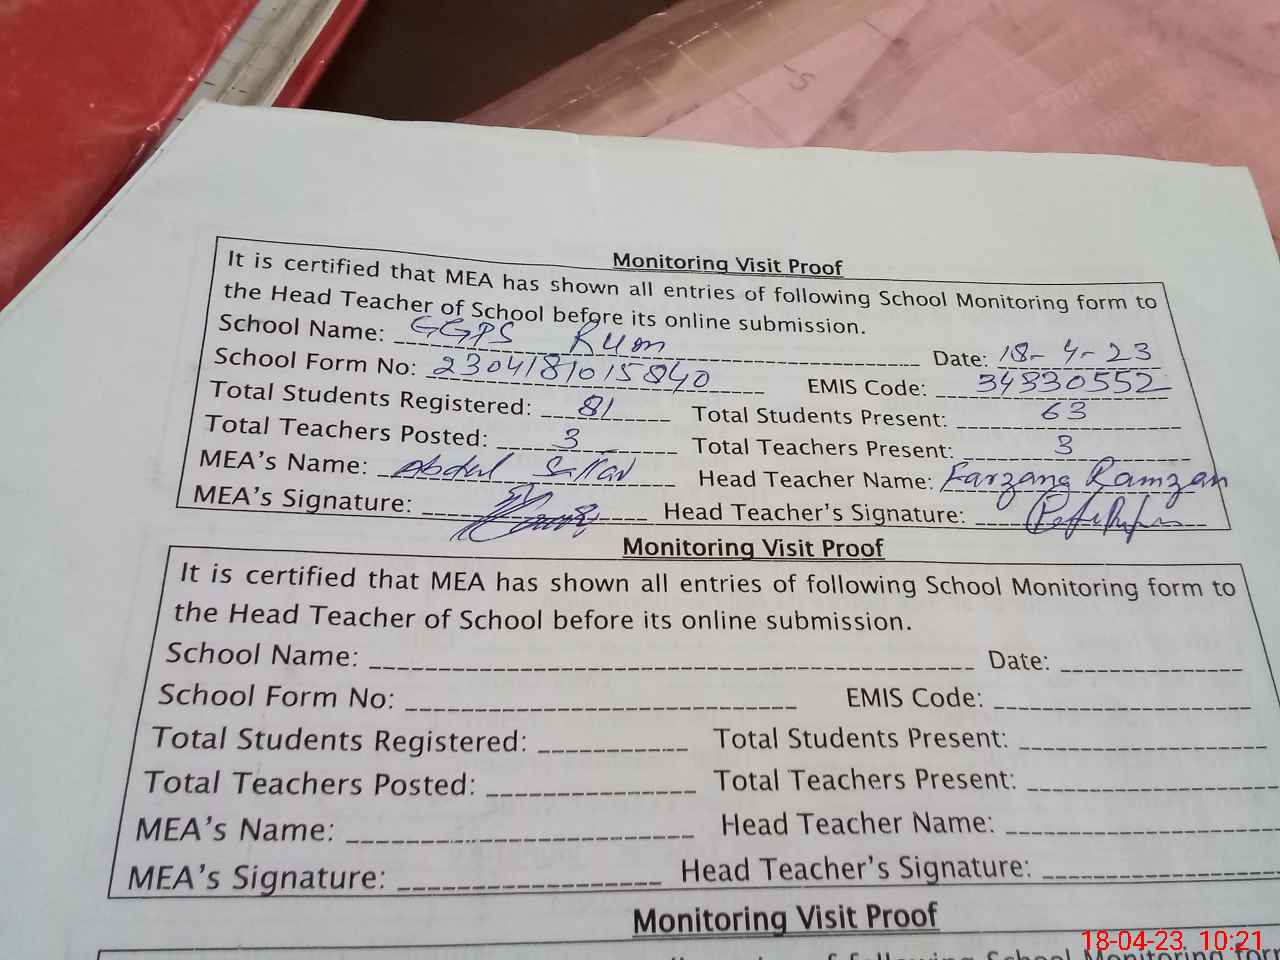 Monitoring Visit Proof
It is certified that MEA has shown all entries of following School Monitoring form to
the Head Teacher of School before its online submission.
School Name: GGPS Rum Date: 18-4-23
School Form No: 2304181015840 EMIS Code: 34330552
Total Students Registered: 81 Total Students Present: 63
Total Teachers Posted: 3 Total Teachers Present: 3
MEA's Name: Abdul Sattar Head Teacher Name: Farzana Ramzan
MEA's Signature: Head Teacher's Signature:
Monitoring Visit Proof
It is certified that MEA has shown all entries of following School Monitoring form to
the Head Teacher of School before its online submission.
School Name: Date:
School Form No: EMIS Code:
Total Students Registered: Total Students Present:
Total Teachers Posted: Total Teachers Present:
MEA's Name: Head Teacher Name:
MEA's Signature: Head Teacher's Signature:
Monitoring Visit Proof
of following School Monitoring form
18-04-23. 10:21